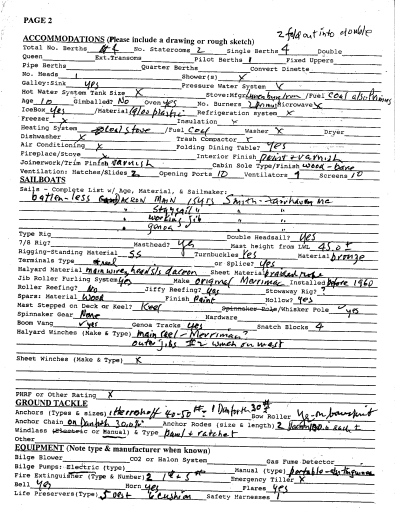 PAGE 2
2 fold out into double
ACCOMMODATIONS (Please include a drawing or rough sketch)
Total No. Berths #4 No. Staterooms 2 Single Berths 4 Double
Queen Ext.Transoms Pilot Berths 1 Fixed Uppers
Pipe Berths Quarter Berths Convert Dinette
No. Heads 1 Shower(s) X
Galley:Sink yes Pressure Water System
Hot Water System Tank Size X Stove:Mfg /Fuel Coal also
Age 10 Gimballed? No Oven yes No. Burners 2 Microwave X
IceBox yes /Material Refrigeration system X
Freezer X Insulation
Heating System coal stove /Fuel Coal Washer X Dryer
Dishwasher X Trash Compactor X
Air Conditioning X Folding Dining Table? Yes
Fireplace/Stove X Interior Finish paint + varnish
Joinerwork/Trim Finish varnish Cabin Sole Type/Finish wood - bare
Ventilation: Hatches/Slides 2 Opening Ports 10 Ventilators 4 Screens 10
SAILBOATS
Sails - Complete List w/ Age, Material, & Sailmaker:
batten-less DACRON MAIN 15yrs Smith - Fairhaven Ma
Staysail " "
working jib " "
genoa "
Type Rig Double Headsail? Yes
7/8 Rig? Masthead? Yes Mast height from LWL 45.0 ±
Rigging-Standing Material SS Turnbuckles Yes Material bronze
Terminals Type or Splice? Yes
Halyard Material main wire, headsls dacron Sheet Material braided rope
Jib Roller Furling System yes Make original Merriman Installed before 1960
Roller Reefing? No Jiffy Reefing? Yes Stowaway Rig? ?
Spars: Material Wood Finish Paint Hollow? Yes
Mast Stepped on Deck or Keel? Keel Spinnaker Pole/Whisker Pole yes
Spinnaker Gear None Hardware
Boom Vang yes Genoa Tracks Yes Snatch Blocks 4
Halyard Winches (Make & Type) main reel - Merriman?
outer jibs #2 winch on mast
Sheet Winches (Make & Type) X
PHRF or Other Rating X
GROUND TACKLE
Anchors (Types & sizes) 1 Herreshoff 40-50# + 1 Danforth 30# Bow Roller
Anchor Chain on Danforth Anchor Rodes (size & length) 2
Windlass (Electric or Manual) & Type pawl + ratchet
Other
EQUIPMENT (Note type & manufacturer when known)
Bilge Blower CO2 or Halon System Gas Fume Detector
Bilge Pumps: Electric (type) Manual (type) portable
Fire Extinguisher (Type & Number) 2 Emergency Tiller X
Bell yes Horn yes Flares yes
Life Preservers(Type) 5 vest cushion Safety Harnesses